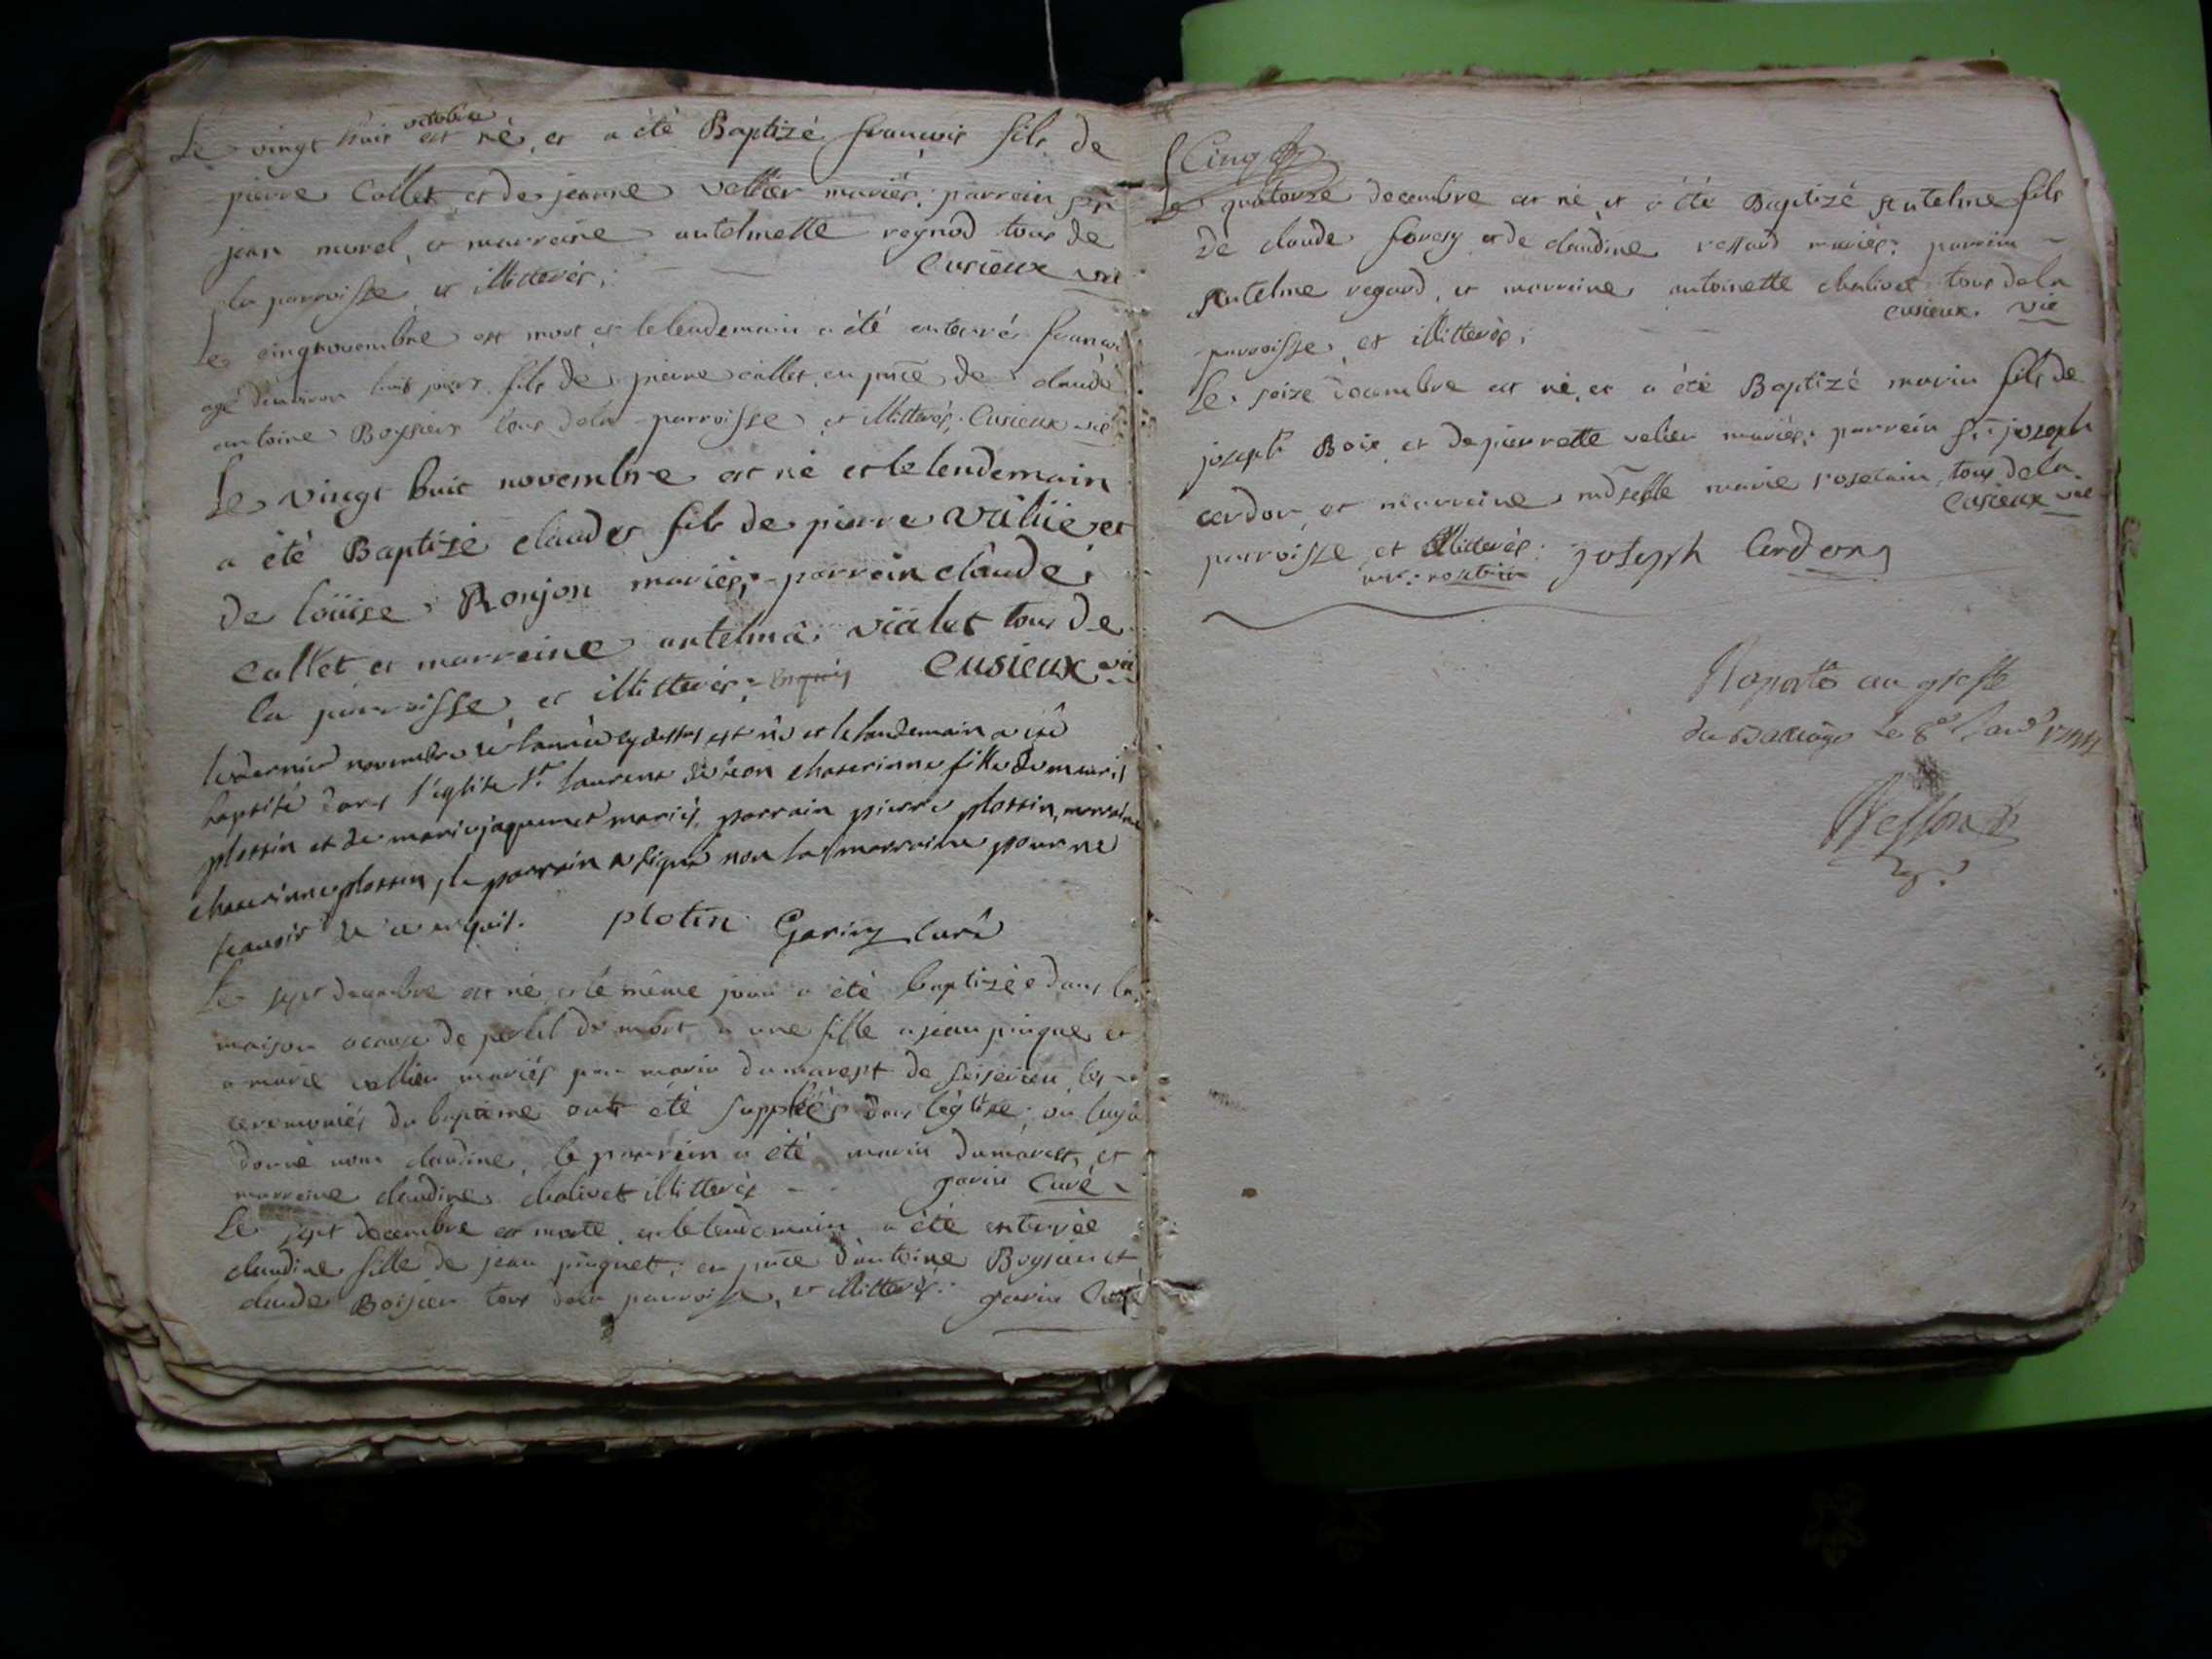 Le vingt huit octobre est né, et a été Baptizé françois fils de
pierre Collet, et de jeanne vellier mariés; parrain
jean morel, et marreine antelmette regnod tous de
la parroisse, et illitterés;
Cusieux vie
Le cinq novembre est mort, et le lendemain a été enterré françoi
agé d'environ huit jours fils de pierre collet, en pnce de claude
antoine Boysieu tous dela parroisse, et illitterés; Cusieux vie
Le vingt huit novembre est né et le lendemain
a été Baptizé claude fils de pierre et
de loüise Ronjon mariés; parrein claude
Collet, et marreine antelma vialet tous de
la parroisse, et illitterés; Enquis Cusieux vie
le dernier novembre de l'année cy dessus est né et le landemain a été
baptisé dans l'église st laurent chaterinne fille de
plottin et de marie jaquemet mariés, parrain pierre plottin, marraine
chaterinne plottin, le parrain a signé non la marraine pour ne
scavoir de ce enquis. plotin Garin Curé
Le sept decembre est né, et le même jour a été baptizée dans la
maison a cause de peril de mort, a une fille a jean pinque et
a marie vellieu mariés par marin dumarest de seiserieu, les
ceremonies du baptême ont été supplées dans l'église; où luy a
donné nom claudine, le parrein a été marin dumarest, et
marreine claudine chalivet illitterés - garin Curé
Le sept decembre est morte, et le lendemain a été enterrée
claudine fille de jean pinguet; en pnce d'antoine Boysieu et
claude Boisieu tous dela parroisse, et illitterés. garin Curé
Cinq
Le quatorze decembre est né, et a été Baptizé Antelme fils
de claude forery et de claudine ressard mariés; parrein
Antelme regard, et marreine antoinette chalivet tous dela
parroisse, et illitterés;
cusieux vie
Le seize decembre est né, et a été Baptizé marin fils de
joseph Boix, et de pierrette velieu mariés; parrein sr joseph
cerdon, et marreine mdselle marie roselain, tous dela
parroisse et illitterés; joseph Cerdon
Cusieux vie
Raporté au greffe
du Balliage le 8e Janr